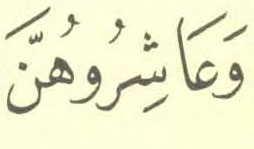 وَعَاشِرُوهُنَّ